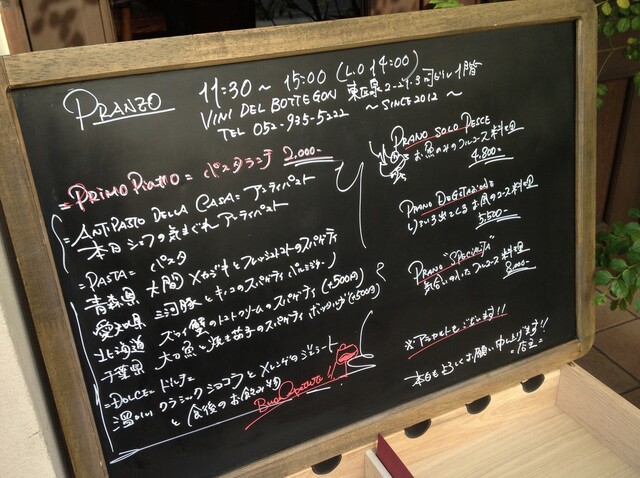 PRANZO
11:30 ～ 15:00 (L.O 14:00)
VINI DEL BOTTEGON 1階
TEL 052-935-5222 ～ SINCE 2012 ～
=PRIMO PIATTO= パスタランチ 2,000-
=ANTIPASTO DELLA CASA= アンティパスト
本日シェフの気まぐれ アンティパスト
=PASTA= パスタ
青森県 大間 メカジキとフレッシュトマトのスパゲティ
愛知県 三河豚とキノコのスパゲティ
北海道 ズワイ蟹のトマトクリームのスパゲティ (+500円)
千葉県 と焼き茄子のスパゲティ (+500円)
=DOLCE= ドルチェ
温かい クラシックショコラと
と 食後のお飲み物
PRANZO SOLO PESCE
お魚のみのフルコース料理
4,800-
PRANZO DEGUSTAZIONE
コース料理
5,500-
PRANZO "SPECIALITA"
気合いの入ったフルコース料理
8,000-
※アラカルトもございます!!
本日もよろしくお願い申し上げます!!
店主